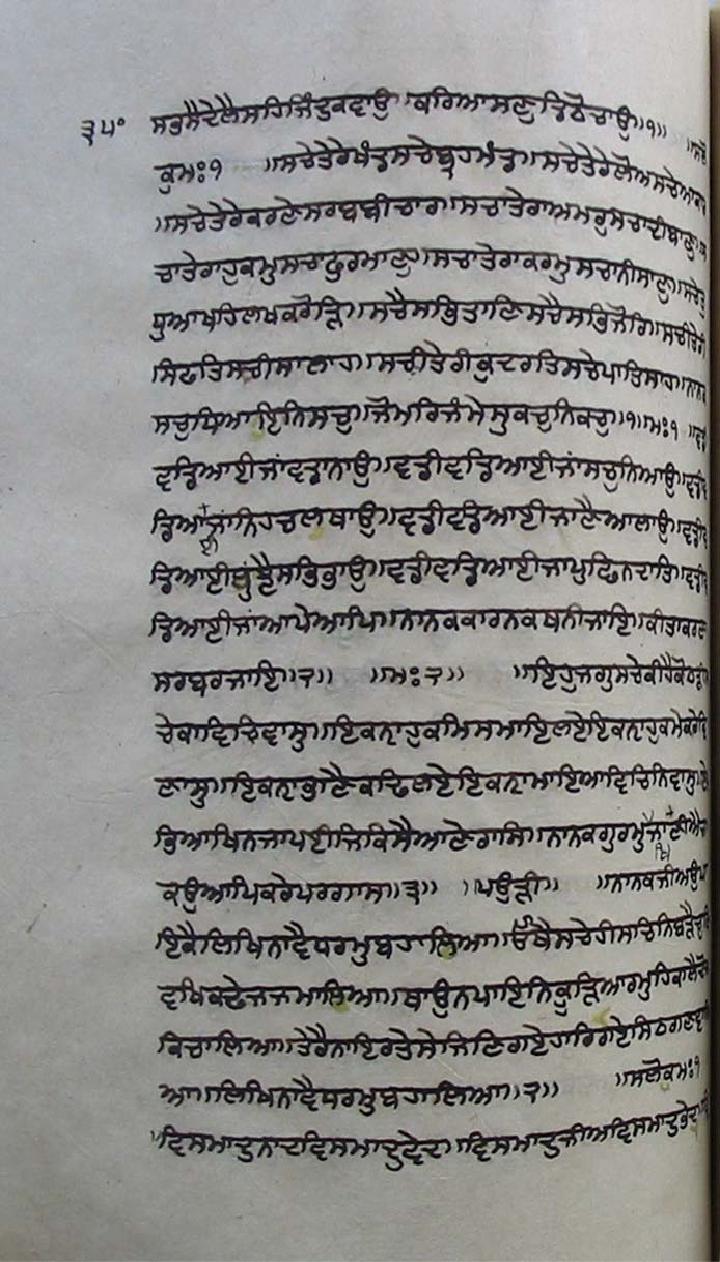 ੩੫੦ ਸਭਸੈਦੇਲੈਸਹਿਜਿੰਦੁਕਵਾਉ॥ਕਰਿਆਸਣੁਡਿਠੋਚਾਉ॥੧॥ ॥ਸਲੋ
ਕੁਮਃ੧ ॥ਸਚੇਤੇਰੇਖੰਡਸਚੇਬ੍ਰਹਮੰਡ॥ਸਚੇਤੇਰੇਲੋਅਸਚੇਆਕਾਰ
॥ਸਚੇਤੇਰੇਕਰਣੇਸਰਬਬੀਚਾਰ॥ਸਚਾਤੇਰਾਅਮਰੁਸਚਾਦੀਬਾਣੁ॥ਸ
ਚਾਤੇਰਾਹੁਕਮੁਸਚਾਫੁਰਮਾਣੁ॥ਸਚਾਤੇਰਾਕਰਮੁਸਚਾਨੀਸਾਣੁ॥ਸਚੇਤੁ
ਧੁਆਖਹਿਲਖਕਰੋੜਿ॥ਸਚੈਸਭਿਤਾਣਿਸਚੈਸਭਿਜੋਰਿ॥ਸਚੀਤੇਰੀ
ਸਿਫਤਿਸਚੀਸਾਲਾਹ॥ਸਚੀਤੇਰੀਕੁਦਰਤਿਸਚੇਪਾਤਿਸਾਹ॥ਨਾਨਕ
ਸਚੁਧਿਆਇਨਿਸਚੁ॥ਜੋਮਰਿਜੰਮੇਸੁਕਚੁਨਿਕਚੁ॥੧॥ਮਃ੧ ॥ਵਡੀ
ਵਡਿਆਈਜਾਂਵਡਾਨਾਉ॥ਵਡੀਵਡਿਆਈਜਾਂਸਚੁਨਿਆਉ॥ਵਡੀਵ
ਡਿਆਈਜਾਨਿਹਚਲਥਾਉ॥ਵਡੀਵਡਿਆਈਜਾਣੈਆਲਾਉ॥ਵਡੀਵ
ਡਿਆਈਬੁਝੈਸਭਿਭਾਉ॥ਵਡੀਵਡਿਆਈਜਾਪੁਛਿਨਦਾਤਿ॥ਵਡੀਵ
ਡਿਆਈਜਾਂਆਪੇਆਪਿ॥ਨਾਨਕਕਾਰਨਕਥਨੀਜਾਇ॥ਕੀਤਾਕਰਣਾ
ਸਰਬਰਜਾਇ॥੨॥ ॥ਮਃ੨॥ ॥ਇਹੁਜਗੁਸਚੇਕੀਹੈਕੋਠੜੀਸ
ਚੇਕਾਵਿਚਿਵਾਸੁ॥ਇਕਨਾਹੁਕਮਿਸਮਾਇਲਏਇਕਨਾਹੁਕਮੇਕਰੇਵਿ
ਣਾਸੁ॥ਇਕਨਾਭਾਣੈਕਢਿਲਏਇਕਨਾਮਾਇਆਵਿਚਿਨਿਵਾਸੁ॥ਏ
ਭਿਆਖਿਨਜਾਪਈਜਿਕਿਸੈਆਣੇਰਾਸਿ॥ਨਾਨਕਗੁਰਮੁਖਿਜਾਣੀਐਜਾ
ਕਉਆਪਿਕਰੇਪਰਗਾਸ॥੩॥ ॥ਪਉੜੀ॥ ॥ਨਾਨਕਜੀਅਉਪਾ
ਇਕੈਲਿਖਿਨਾਵੈਧਰਮੁਬਹਾਲਿਆ॥ਓਥੈਸਚੇਹੀਸਚਿਨਿਬੜੈਚੁਣਿ
ਵਖਿਕਢੇਜਜਮਾਲਿਆ॥ਥਾਉਨਪਾਇਨਿਕੂੜਿਆਰਮੁਹਿਕਾਲੈਦੋਜ
ਕਿਚਾਲਿਆ॥ਤੇਰੈਨਾਇਰਤੇਸੇਜਿਣਿਗਏਹਾਰਿਗਏਸਿਠਗਣਵਾਲਿ
ਆ॥ਲਿਖਿਨਾਵੈਧਰਮੁਬਹਾਲਿਆ॥੨॥ ॥ਸਲੋਕਮਃ੧
॥ਵਿਸਮਾਦੁਨਾਦਵਿਸਮਾਦੁਵੇਦ॥ਵਿਸਮਾਦੁਜੀਅਵਿਸਮਾਦੁਭੇਦ॥